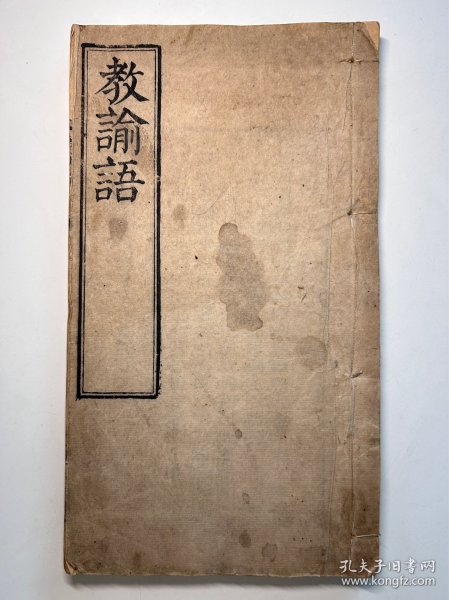 教諭語
孔夫子旧书网
www.kongfz.com